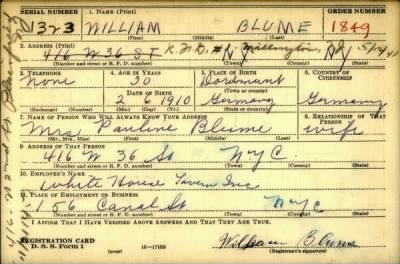 SERIAL NUMBER 1. NAME (Print) ORDER NUMBER
1323 WILLIAM BLUME 1849
(First) (Middle) (Last)
2. ADDRESS (Print)
416 W 36 ST R.F.D. # N.Y.
(Number and street or R. F. D. number) (Town) (County) (State)
3. TELEPHONE 4. AGE IN YEARS 5. PLACE OF BIRTH 6. COUNTRY OF CITIZENSHIP
None 30 Dordmunt
DATE OF BIRTH (Town or county)
2 6 1910 Germany Germany
(Mo.) (Day) (Yr.) (State or country)
7. NAME OF PERSON WHO WILL ALWAYS KNOW YOUR ADDRESS 8. RELATIONSHIP OF THAT PERSON
Mrs Pauline Blume wife
(Mr., Mrs., Miss) (First) (Middle) (Last)
9. ADDRESS OF THAT PERSON
416 W 36 St NYC
(Number and street or R. F. D. number) (Town) (County) (State)
10. EMPLOYER'S NAME
White House Tavern Inc
11. PLACE OF EMPLOYMENT OR BUSINESS
156 Canal St NYC
(Number and street or R. F. D. number) (Town) (County) (State)
I AFFIRM THAT I HAVE VERIFIED ABOVE ANSWERS AND THAT THEY ARE TRUE.
REGISTRATION CARD
D. S. S. Form 1 16—17105 William Blume
(Registrant's signature)